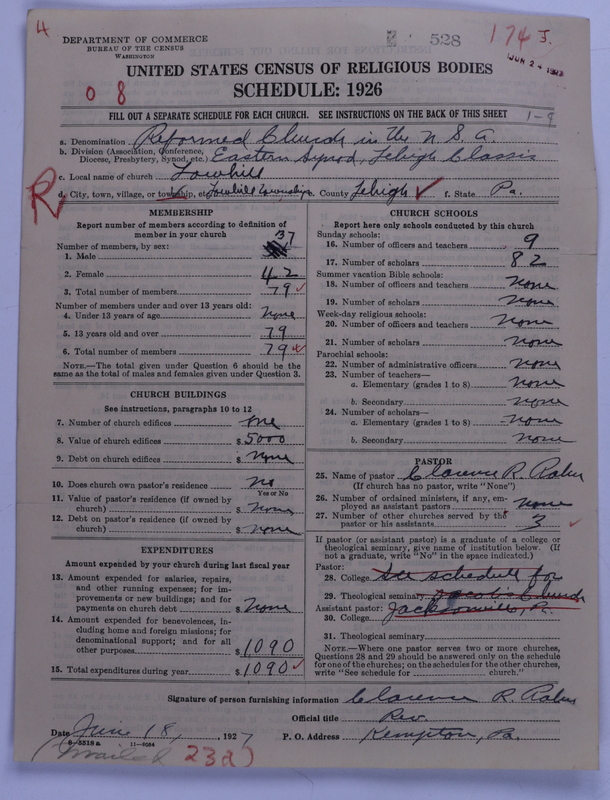 4
DEPARTMENT OF COMMERCE
BUREAU OF THE CENSUS
WASHINGTON
528
174 J.
JUN 24
UNITED STATES CENSUS OF RELIGIOUS BODIES
0 8
SCHEDULE: 1926
FILL OUT A SEPARATE SCHEDULE FOR EACH CHURCH. SEE INSTRUCTIONS ON THE BACK OF THIS SHEET
1-9
a. Denomination Reformed Church in the U.S.A.
b. Division (Association, Conference, Diocese, Presbytery, Synod, etc.) Eastern Synod, Lehigh Classis
c. Local name of church Lowhill
R
d. City, town, village, or township, etc. Lowhill Township e. County Lehigh f. State Pa.
MEMBERSHIP
Report number of members according to definition of
member in your church
Number of members, by sex:
1. Male 37
2. Female 42
3. Total number of members 79
Number of members under and over 13 years old:
4. Under 13 years of age none
5. 13 years old and over 79
6. Total number of members 79
NOTE.—The total given under Question 6 should be
same as the total of males and females given under Question 3.
CHURCH BUILDINGS
See instructions, paragraphs 10 to 12
7. Number of church edifices one
8. Value of church edifices $5000
9. Debt on church edifices $ none
10. Does church own pastor's residence no
Yes or No
11. Value of pastor's residence (if owned by
church) $ none
12. Debt on pastor's residence (if owned by
church) $ none
EXPENDITURES
Amount expended by your church during last fiscal year
13. Amount expended for salaries, repairs,
and other running expenses; for im-
provements or new buildings; and for
payments on church debt $ none
14. Amount expended for benevolences, in-
cluding home and foreign missions; for
denominational support; and for all
other purposes $1090
15. Total expenditures during year $1090
CHURCH SCHOOLS
Report here only schools conducted by this church
Sunday schools:
16. Number of officers and teachers 9
17. Number of scholars 82
Summer vacation Bible schools:
18. Number of officers and teachers none
19. Number of scholars none
Week-day religious schools:
20. Number of officers and teachers none
21. Number of scholars none
Parochial schools:
22. Number of administrative officers none
23. Number of teachers—
a. Elementary (grades 1 to 8) none
b. Secondary none
24. Number of scholars—
a. Elementary (grades 1 to 8) none
b. Secondary none
PASTOR
25. Name of pastor Clarence R. Rahn
(If church has no pastor, write "None")
26. Number of ordained ministers, if any, em-
ployed as assistant pastors none
27. Number of other churches served by the
pastor or his assistants 3
If pastor (or assistant pastor) is a graduate of a college or
theological seminary, give name of institution below. (If
not a graduate, write "No" in the space indicated.)
Pastor:
28. College See schedule for
29. Theological seminary Jacob's Church
Assistant pastor: Jacksonville, Pa.
30. College
31. Theological seminary
NOTE.—Where one pastor serves two or more churches,
Questions 28 and 29 should be answered only on the schedule
for one of the churches; on the schedules for the other churches,
write "See schedule for church."
Signature of person furnishing information Clarence R. Rahn
Official title Rev.
Date June 18, 1927
P. O. Address Kempton, Pa.
8-5518a 11-9054
(mailed 232)